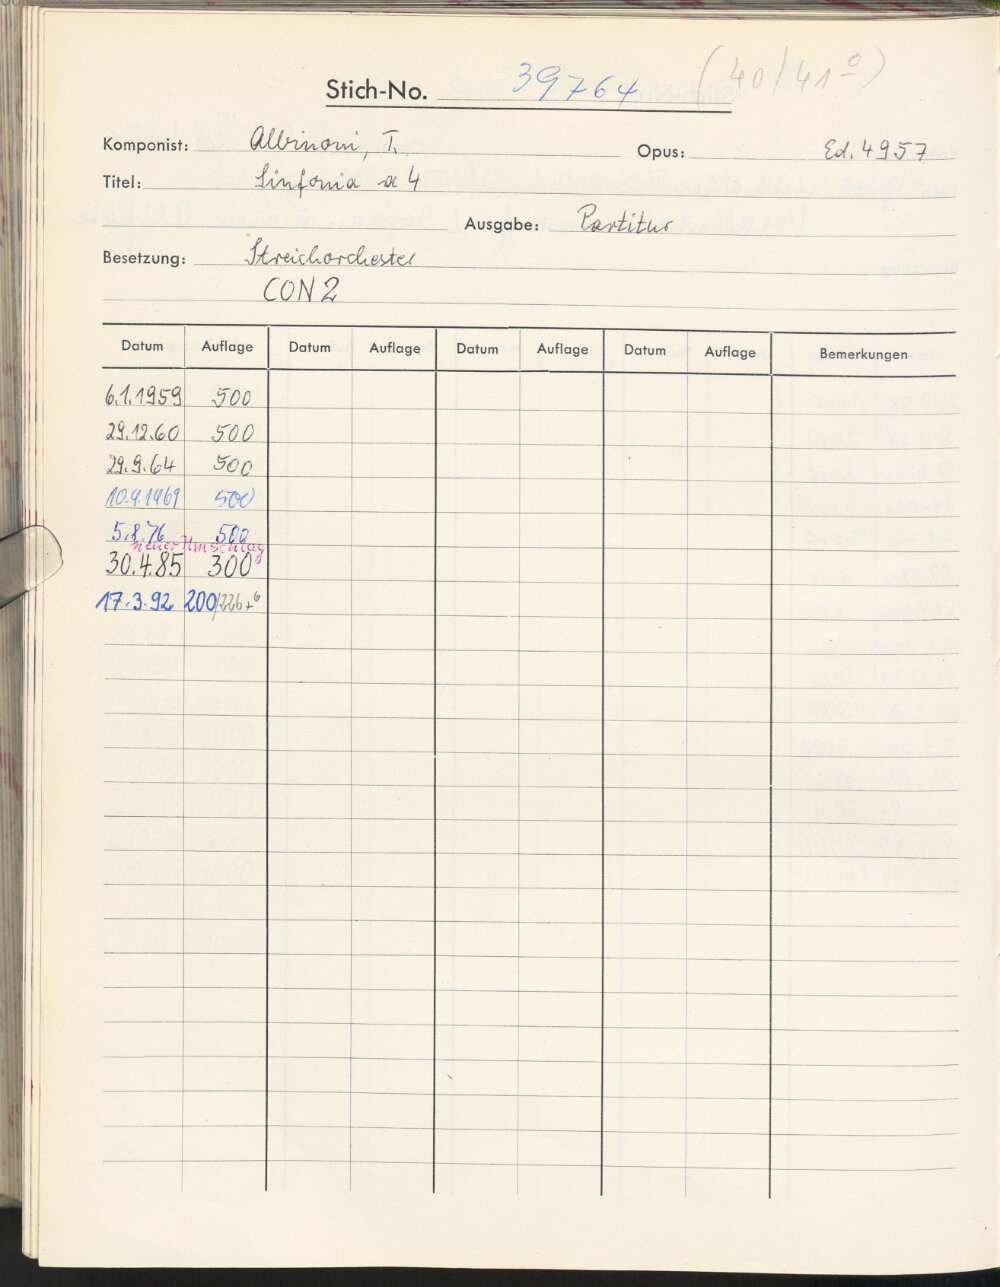 Stich-No. 39764 (40/41-0)
Komponist: Albinoni, T. Opus: Ed. 4957
Titel: Sinfonia a 4
Ausgabe: Partitur
Besetzung: Streichorchester
CON 2
Datum Auflage Datum Auflage Datum Auflage Datum Auflage Bemerkungen
6.1.1959 500
29.12.60 500
29.9.64 500
10.9.1969 500
5.8.76 500
neuer Umschlag
30.4.85 300
17.3.92 200/226+6